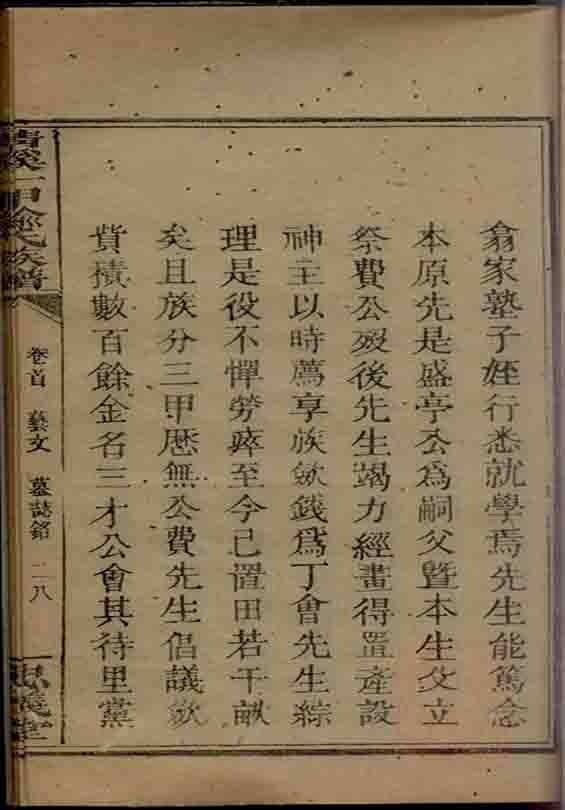 翕家塾子姪行悉就學焉先生能篤念
本原先是盛亭公爲嗣父暨本生父立
祭費公歿後先生竭力經畫得置產設
神主以時薦享族歛錢爲丁會先生綜
理是役不憚勞瘁至今已置田若干畝
矣且族分三甲歷無公費先生倡議歛
貲積數百餘金名三才公會其待里黨
清溪一甲余氏族譜
卷首 藝文 墓誌銘 二八